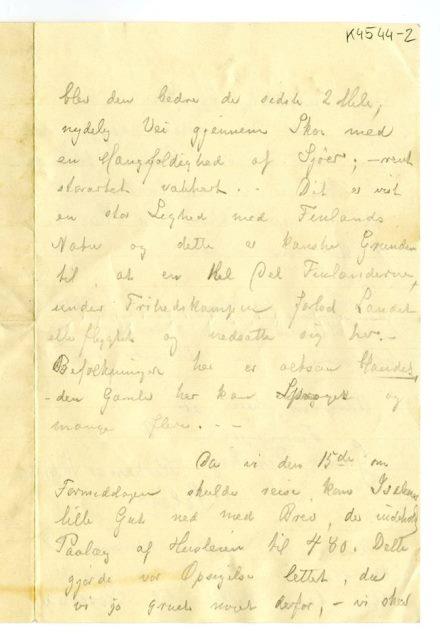 K4544-2
blev den bedre de sidste 2 Mile,
nydelig Vei gjennem Skov med
en Mangfoldighed af Sjöer; – rent
storartet vakkert. . Det er vist
en stor Lighed med Finlands
Natur og dette er kanske Grunden
til, at en Hel Del Finlænderne,
under Frihedskampen, forlod Landet
eller flygtet og nedsatte sig her. –
Befolkningen her er altsaa
– den Gamle her kan Sproget og
mange flere. – –
Da vi den 15de om
Formiddagen skulde reise, kom
lille Gut ned med Brev, der indeholdt
Paalæg af Husleien til 480. Dette
gjorde vor Opsigelse lettet, da
vi jo gruet noget derfor, – vi skrev